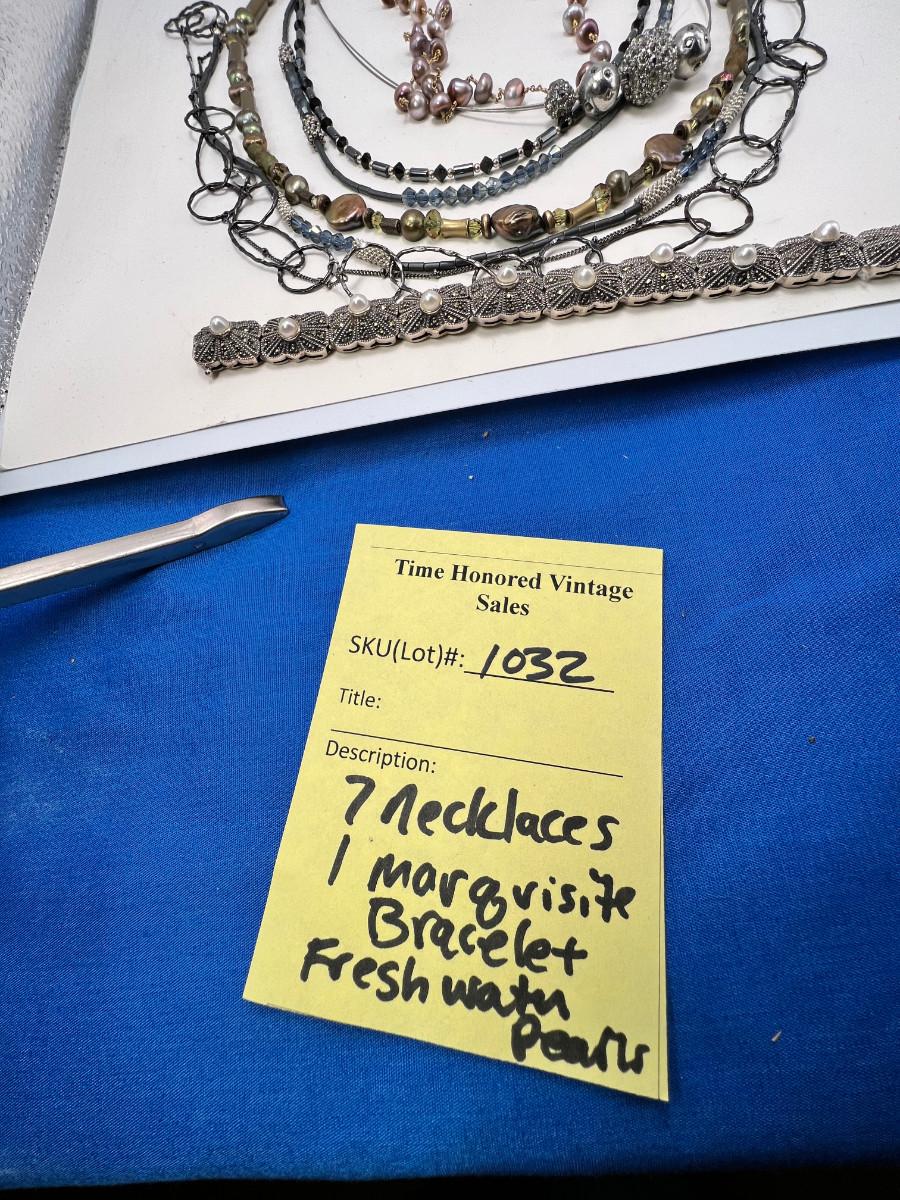 Time Honored Vintage
Sales
SKU(Lot)#: 1032
Title:
Description:
7 Necklaces
1 marqvisite
Bracelet
Fresh watn
Pearls